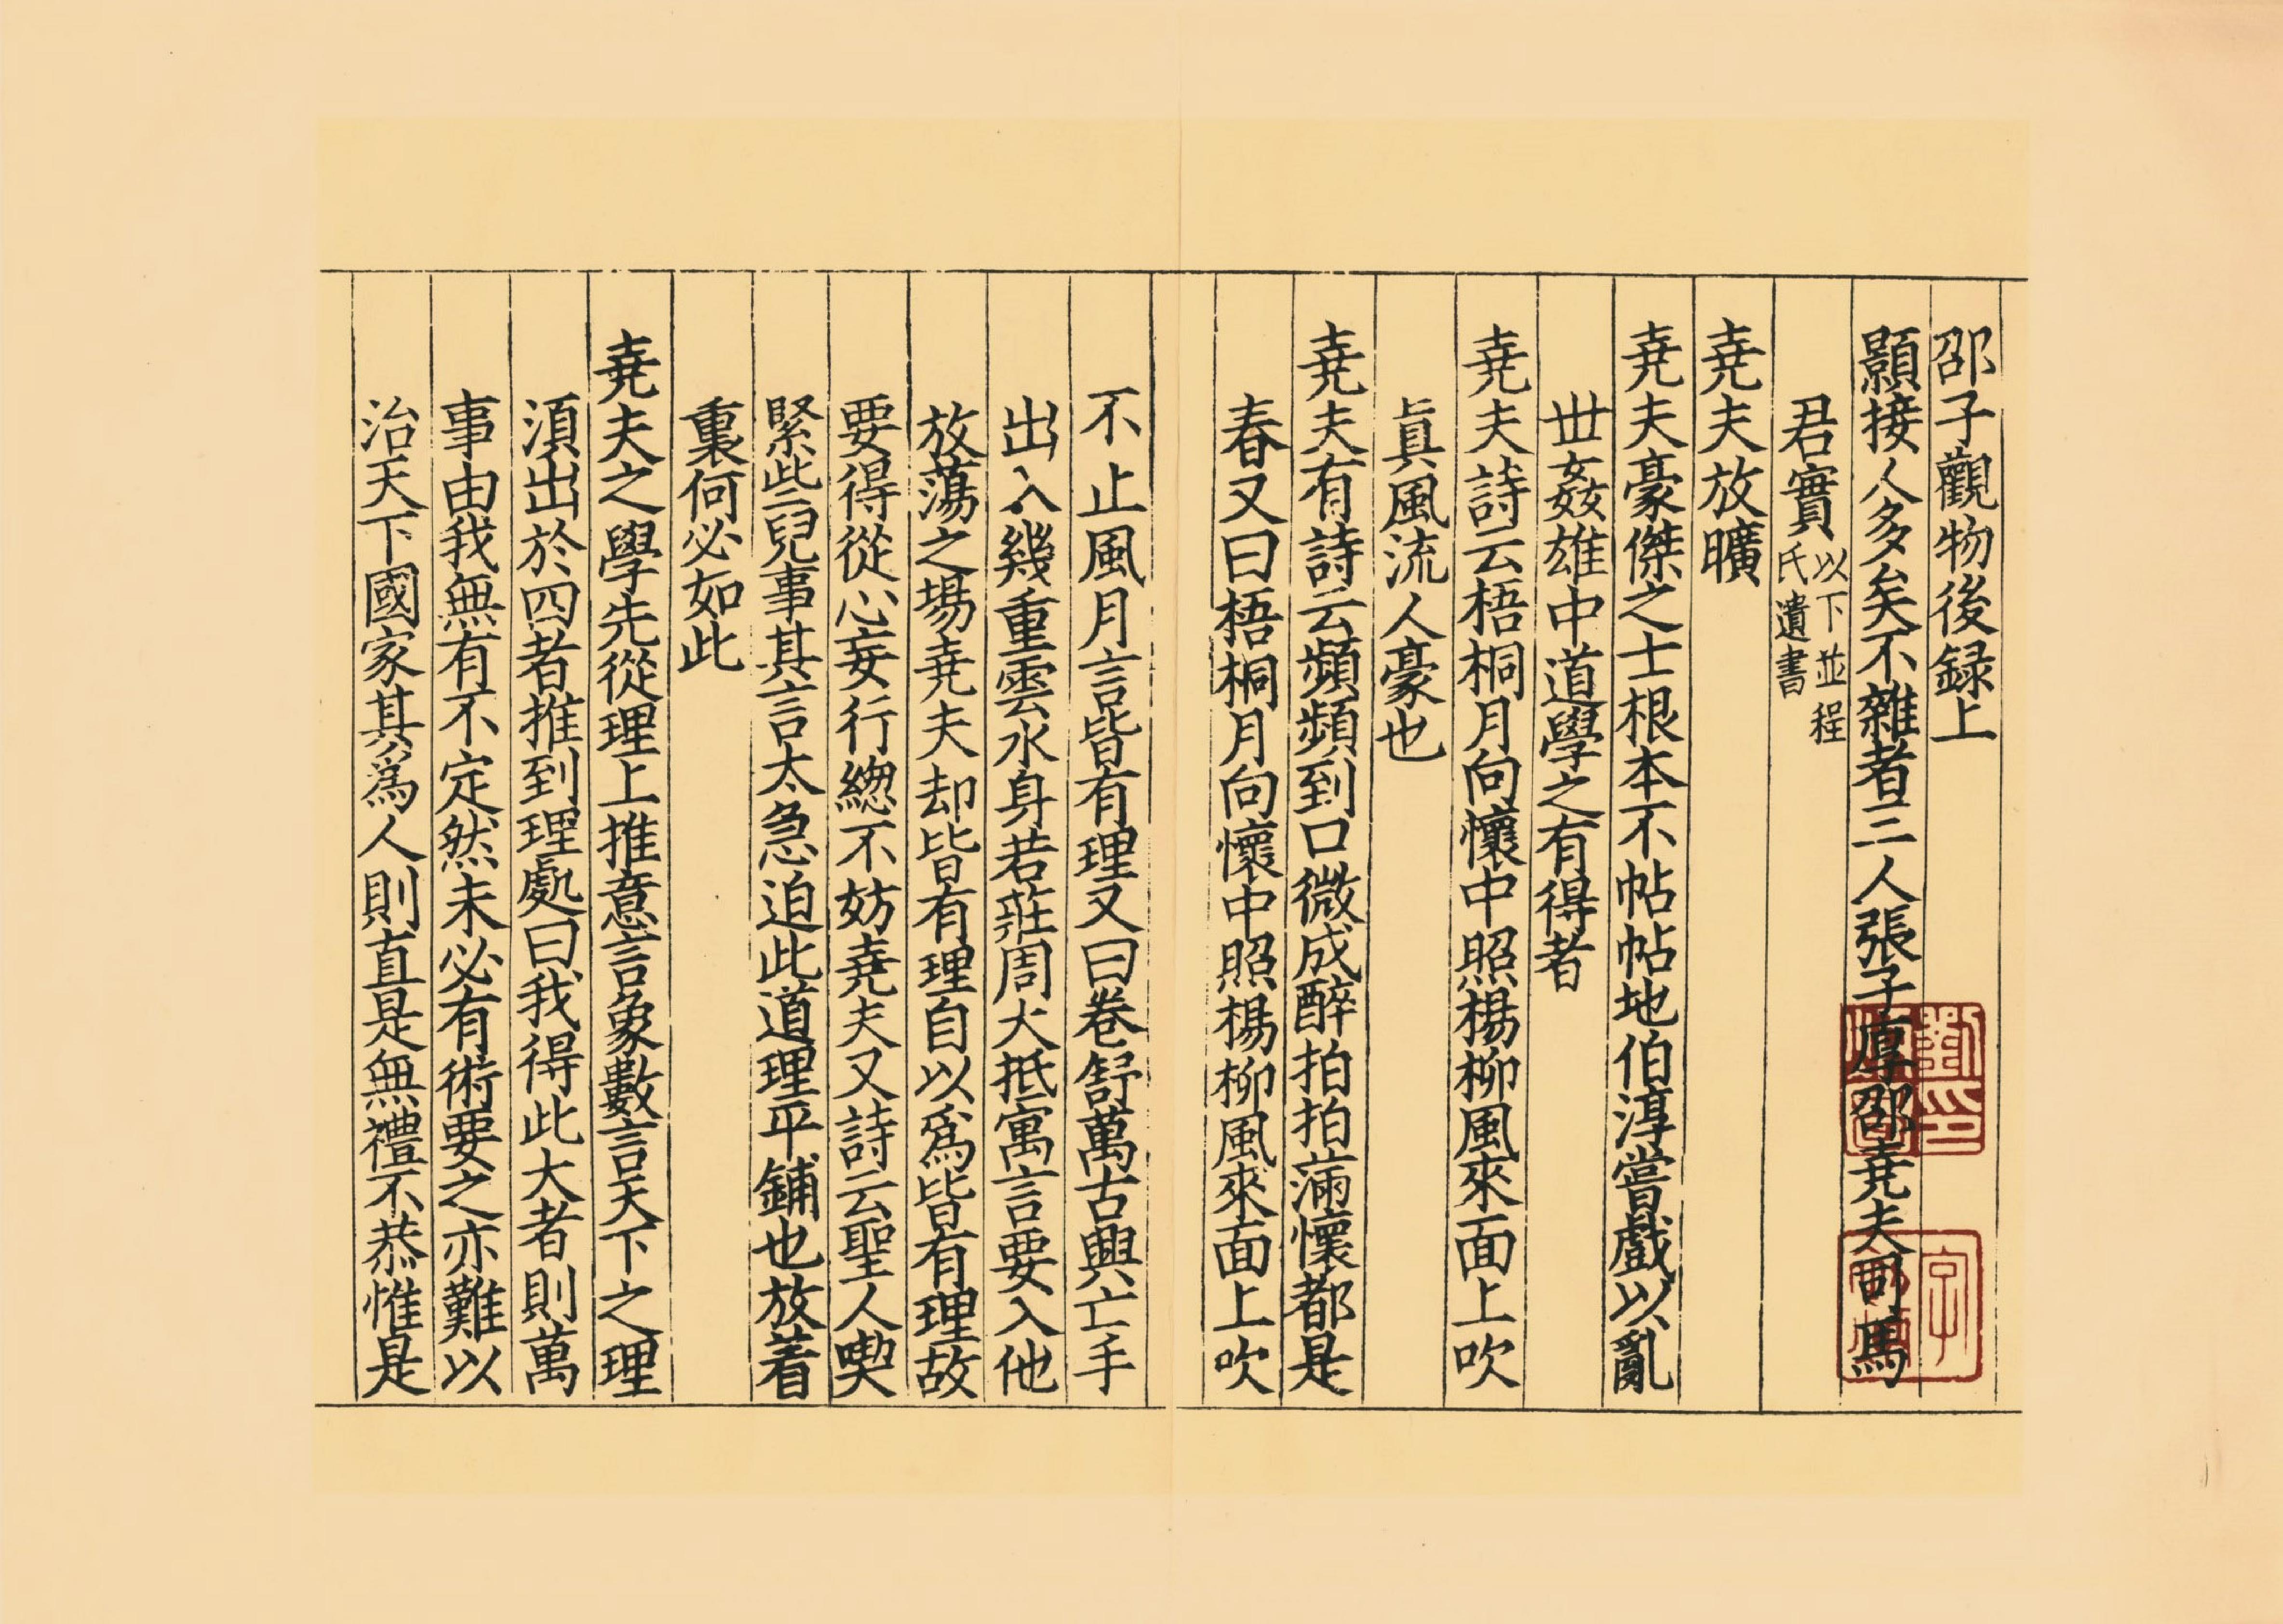 邵子觀物後録上
顥接人多矣不雜者三人張子厚邵堯夫司馬
君實以下並程
氏遺書
堯夫放曠
堯夫豪傑之士根本不帖帖地伯淳嘗戲以亂
丗姦雄中道學之有得者
堯夫詩云梧桐月向懷中照楊柳風來面上吹
眞風流人豪也
堯夫有詩云頻頻到口微成醉拍拍滿懷都是
春又曰梧桐月向懷中照楊柳風來面上吹
不止風月言皆有理又曰卷舒萬古興亡手
出入幾重雲水身若莊周大抵寓言要入他
放蕩之場堯夫却皆有理自以爲皆有理故
要得從心妄行緫不妨堯夫又詩云聖人喫
緊些兒事其言太急迫此道理平鋪也放着
裏何必如此
堯夫之學先從理上推意言象數言天下之理
須出於四者推到理處曰我得此大者則萬
事由我無有不定然未必有術要之亦難以
治天下國家其爲人則直是無禮不恭惟是